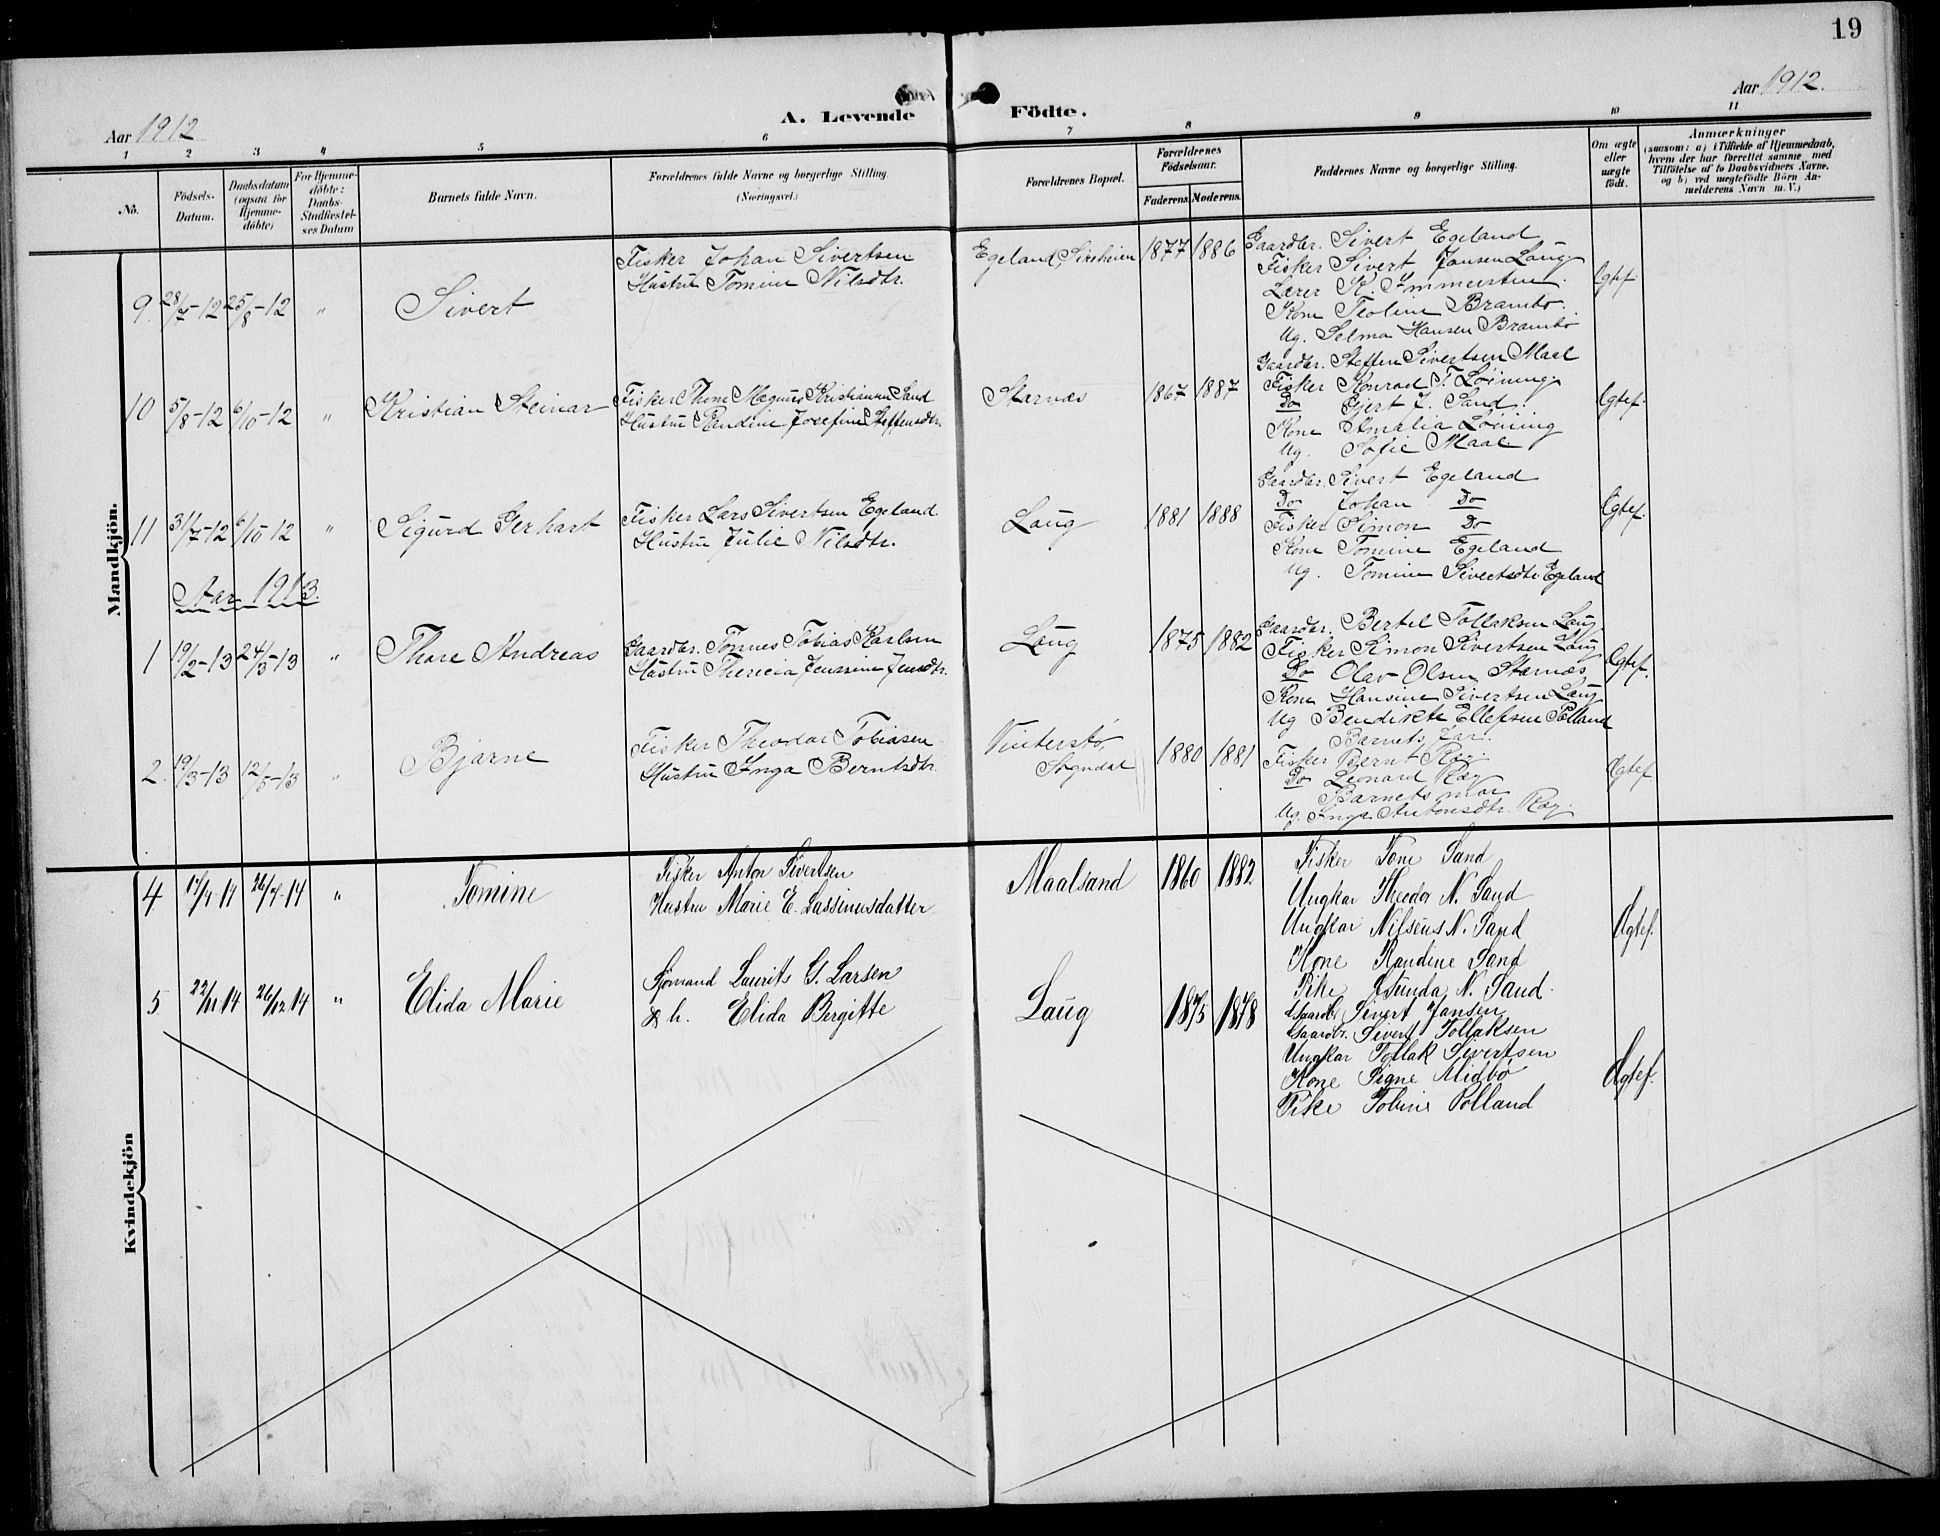 19
Aar 1912
A. Levende Födte.
Aar 1912.
1 2 3 4 5 6 7 8 9 10 11
No.
Födsels-Datum.
Daabsdatum (ogsaa for Hjemme-döbte)
For Hjemme-döbte: Daabs-Stadfæstel-ses Datum
Barnets fulde Navn.
Forældrenes fulde Navne og borgerlige Stilling. (Næringsvei.)
Forældrenes Bopæl.
Forældrenes Födselsaar.
Faderens. Moderens.
Faddernes Navne og borgerlige Stilling.
Om ægte eller uægte födt.
Anmærkninger
(saasom: a) i Tilfælde af Hjemmedaab,
hvem der har forrettet samme, med
Tilföielse af to Daabsvidners Navne,
og b) ved uægtefödte Börn An-
melderens Navn m. V.)
Mandkjön.
9. 28/7-12 25/8-12 " Sivert
Fisker Johan Sivertsen
Hustru Tomine Nilsdtr.
Egeland, Sireheien 1877 1886
Gaardbr. Sivert Egeland
Fisker Sivert Jansen Laug
Lærer K.
Kone Teoline Brambo.
Ug. Selma Hansen Brambo
Ægtef.
10 5/8-12 6/10-12 " Kristian Steinar
Fisker Thom Magnus Kristiansen Sand
Hustru Randine Josefine Steffensdtr.
Starnæs 1867 1887
Gaardbr. Steffen Sivertsen Maal
Fisker Konrad T. Løining.
Do Gjert J. Sand.
Kone Amalia Løining
Ug. Sofie Maal.
Ægtef.
11 31/7-12 6/10-12 " Sigurd Gerhart
Fisker Lars Sivertsen Egeland.
Hustru Julie Nilsdtr.
Laug 1881 1888
Gaardbr. Sivert Egeland
Do Johan Do
Fisker Simon Do
Kone Tomine Egeland
Ug. Tomine Sivertsdtr. Egeland
Ægtef.
Aar 1913.
1 19/2-13 24/3-13 " Thore Andreas
Gaardbr. Tønnes Tobias Karlsen
Hustru Therecia Jenssine Jensdtr.
Laug 1875 1882
Gaardbr. Bertel Tollaksen Laug
Fisker Simon Sivertsen Laug
Do Olav Olsen Starnæs
Kone Hansine Sivertsen Laug
Ug Bendikte Ellefsen Pølland
Ægtef.
2. 19/3-13 12/5-13 " Bjarne
Fisker Theodor Tobiasen
Hustru Inga Berntsdtr.
Vinterstø, Sogndal 1880 1881
Barnets Far.
Fisker Bernt Ræg
Do Leonard Ræg
Barnets mor
Ug. Inga Antonsdtr. Ræg.
Ægtef
Kvindekjön
4 26/4-14 " Tomine
Fisker Anton Sivertsen
Hustru Marie E. Lassinusdatter
Maalsand 1860 1882
Fisker Tom Sand
Ungkar Theodor N. Sand
Ungkar Nilseus N. Sand
Kone Randine Sand
Pike Gunda N. Sand.
Ægtef.
5 22/11 14 26/12 14 " Elida Marie
Sjømand Laurits G. Larsen
& h. Elida Bergitte
Laug 1875 1878
Gaardbr. Sivert Jansen
Gaardbr. Sivert Tollaksen
Ungkar Tollak Sivertsen
Kone Signe Midbø
Pike Toline Pølland
Ægtef.